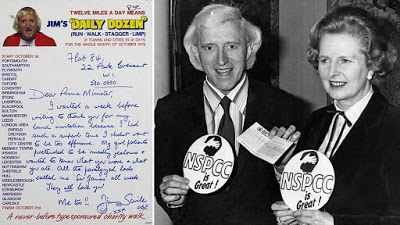 TWELVE MILES A DAY MEANS
JIM'S "DAILY DOZEN"
(RUN - WALK - STAGGER - LIMP)
31 TOWNS AND CITIES IN 31 DAYS
FOR THE WHOLE MONTH OF OCTOBER 1979
START OCTOBER 1st
PORTSMOUTH
SOUTHAMPTON
PLYMOUTH
BRISTOL
CARDIFF
OXFORD
COVENTRY
BIRMINGHAM
STOKE
LIVERPOOL
BLACKPOOL
BOLTON
MANCHESTER
LEEDS
LONDON AREA
ENFIELD
CROYDON
CITY CENTRE
MIDWAY TOWNS
IPSWICH
NORWICH
LEICESTER
NOTTINGHAM
SHEFFIELD
HULL
MIDDLESBROUGH
NEWCASTLE
EDINBURGH
ABERDEEN
GLASGOW
CARLISLE
FINISH OCTOBER 31st
Flat 84.
22 Park Crescent
W.1.
Dear Prime Minister
I waited a week before
writing to thank you for my
lunch invitation because I had
such a superb time I didn't want
to be too effusive. My girl patients
pretended to be madly jealous &
wanted to know what you wore & what
you ate. All the paralysed lads
called me 'Sir James' all week
They all love you!
Me too!!
Jimmy Savile
OBE
A never-before type sponsored charity walk
NSPCC
is
Great!
NSPCC
is
Great!